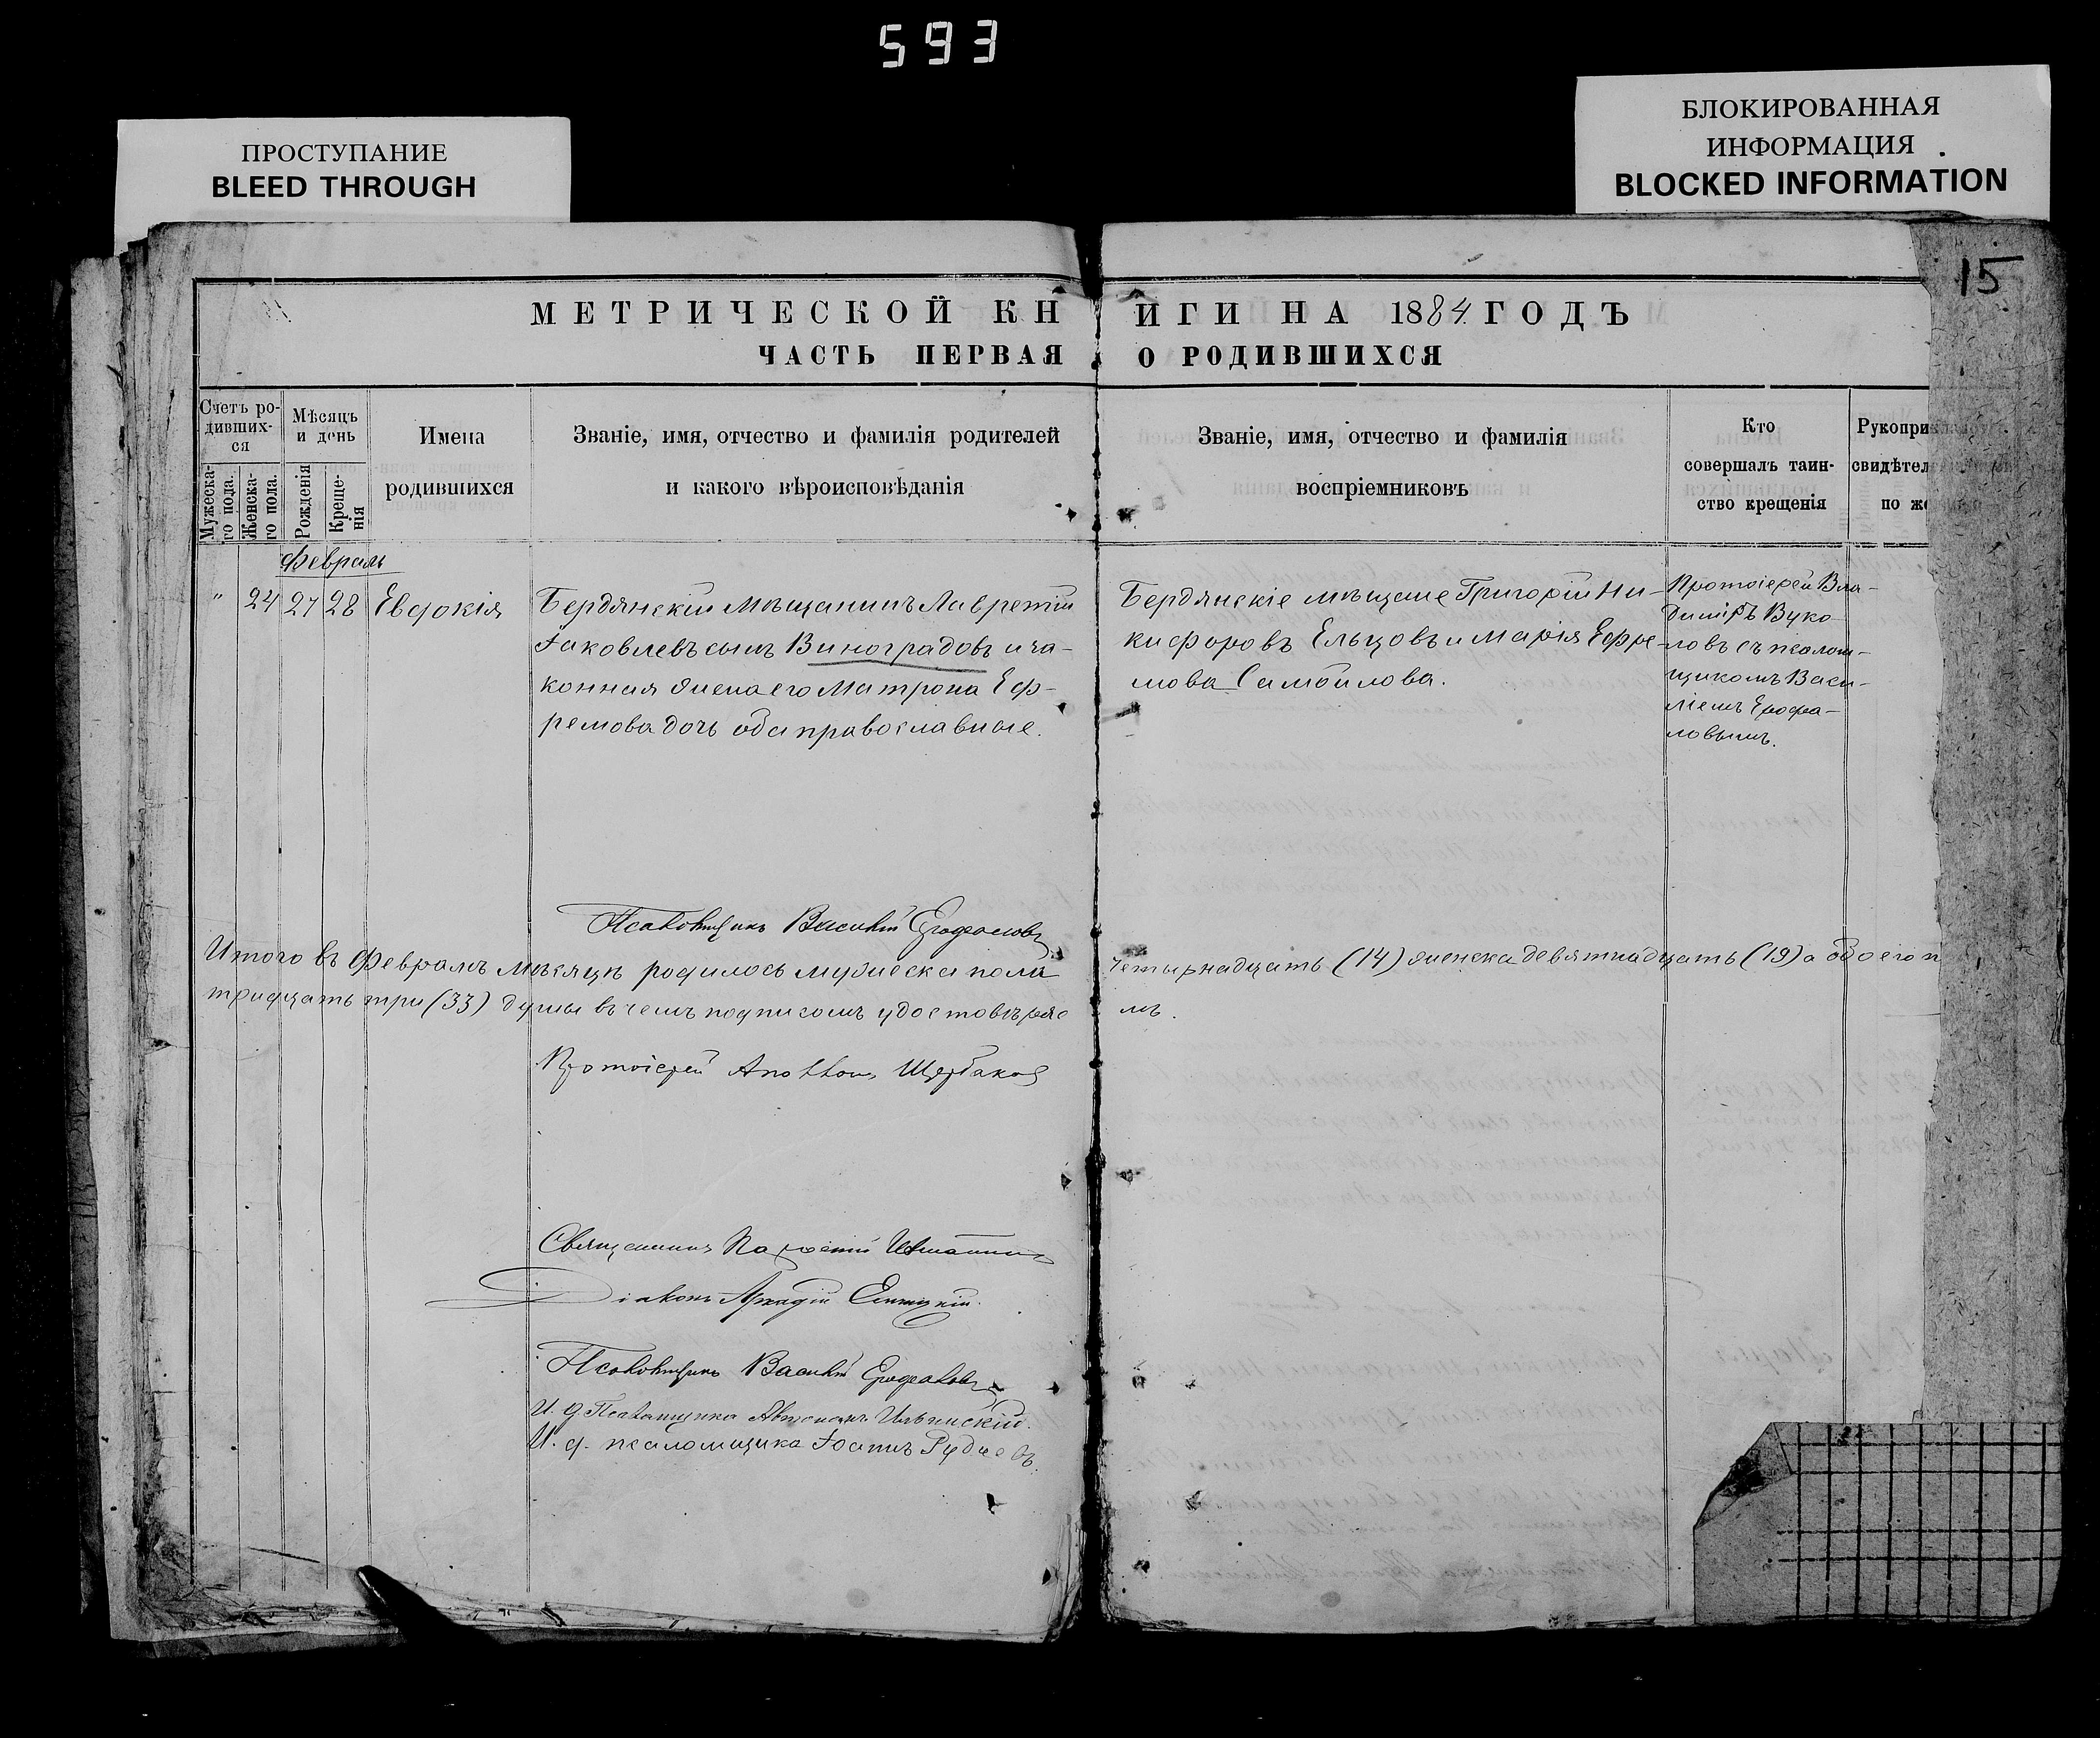 593
ПРОСТУПАНИЕ
BLEED THROUGH
БЛОКИРОВАННАЯ
ИНФОРМАЦИЯ
BLOCKED INFORMATION
15
МЕТРИЧЕСКОЙ КНИГИ НА 1884 ГОДЪ
ЧАСТЬ ПЕРВАЯ О РОДИВШИХСЯ
Счетъ ро-
дивших-
ся
Мужеска-
го пола.
Женска-
го пола.
Мѣсяцъ
и день
Рожденія
Креще-
нія
Имена
родившихся
Званіе, имя, отчество и фамилія родителей
и какого вѣроисповѣданія
Званіе, имя, отчество и фамилія
воспріемниковъ
Кто
совершалъ таин-
ство крещенія
Рукопри
свидѣтел
по же
Февраль
" 24 27 28 Евдокія
Бердянскій мѣщанинъ Лаврентій
Іаковлевъ сынъ Виноградовъ и за-
конная жена его Матрона Еф-
ремова дочь оба православные.
Бердянскіе мѣщане Григорій Ни-
кифоровъ Ельцовъ и Марія Ефре-
мова Самойлова.
Протоіерей Вла-
диміръ Вуко-
ловъ съ псалом-
щикомъ Васи-
ліемъ Ерофа-
ловымъ.
Псаломщикъ Василій Ерофаловъ
Итого въ Февралѣ мѣсяцѣ родилось мужеска пола четырнадцать (14) женска девятнадцать (19) а обоего п
тридцать три (33) души въ чемъ подписомъ удостовѣряе мъ.
Протоіерей Щербаковъ
Священникъ
Діаконъ Аркадій
Псаломщикъ Василій Ерофаловъ
И. д. Псаломщика Ильинскій.
И. д. псаломщика Іоаннъ Рудневъ.